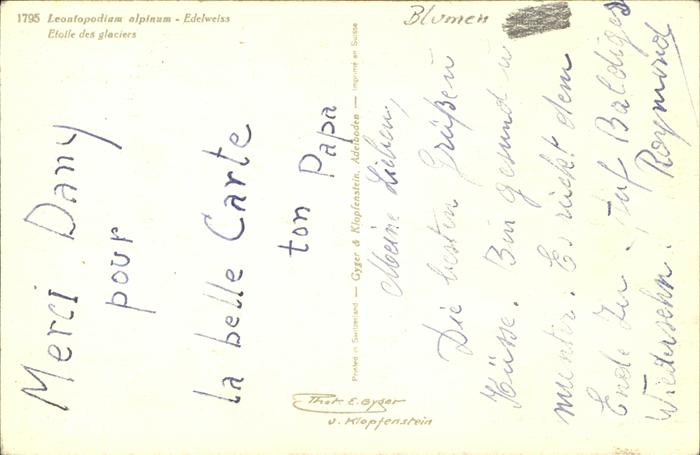 1795 Leontopodium alpinum - Edelweiss
Etoile des glaciers
Blumen
Merci Dany
pour
la belle Carte
ton Papa
Printed in Switzerland — Gyger & Klopfenstein, Adelboden — Imprimé en Suisse
Meine Lieben,
Die besten Grüßen u
Küsse. Bin gesund u
munter. Es rückt dem
Ende zu. Auf Baldiges
Wiedersehn! Raymond
Phot. E. Gyger
u. Klopfenstein